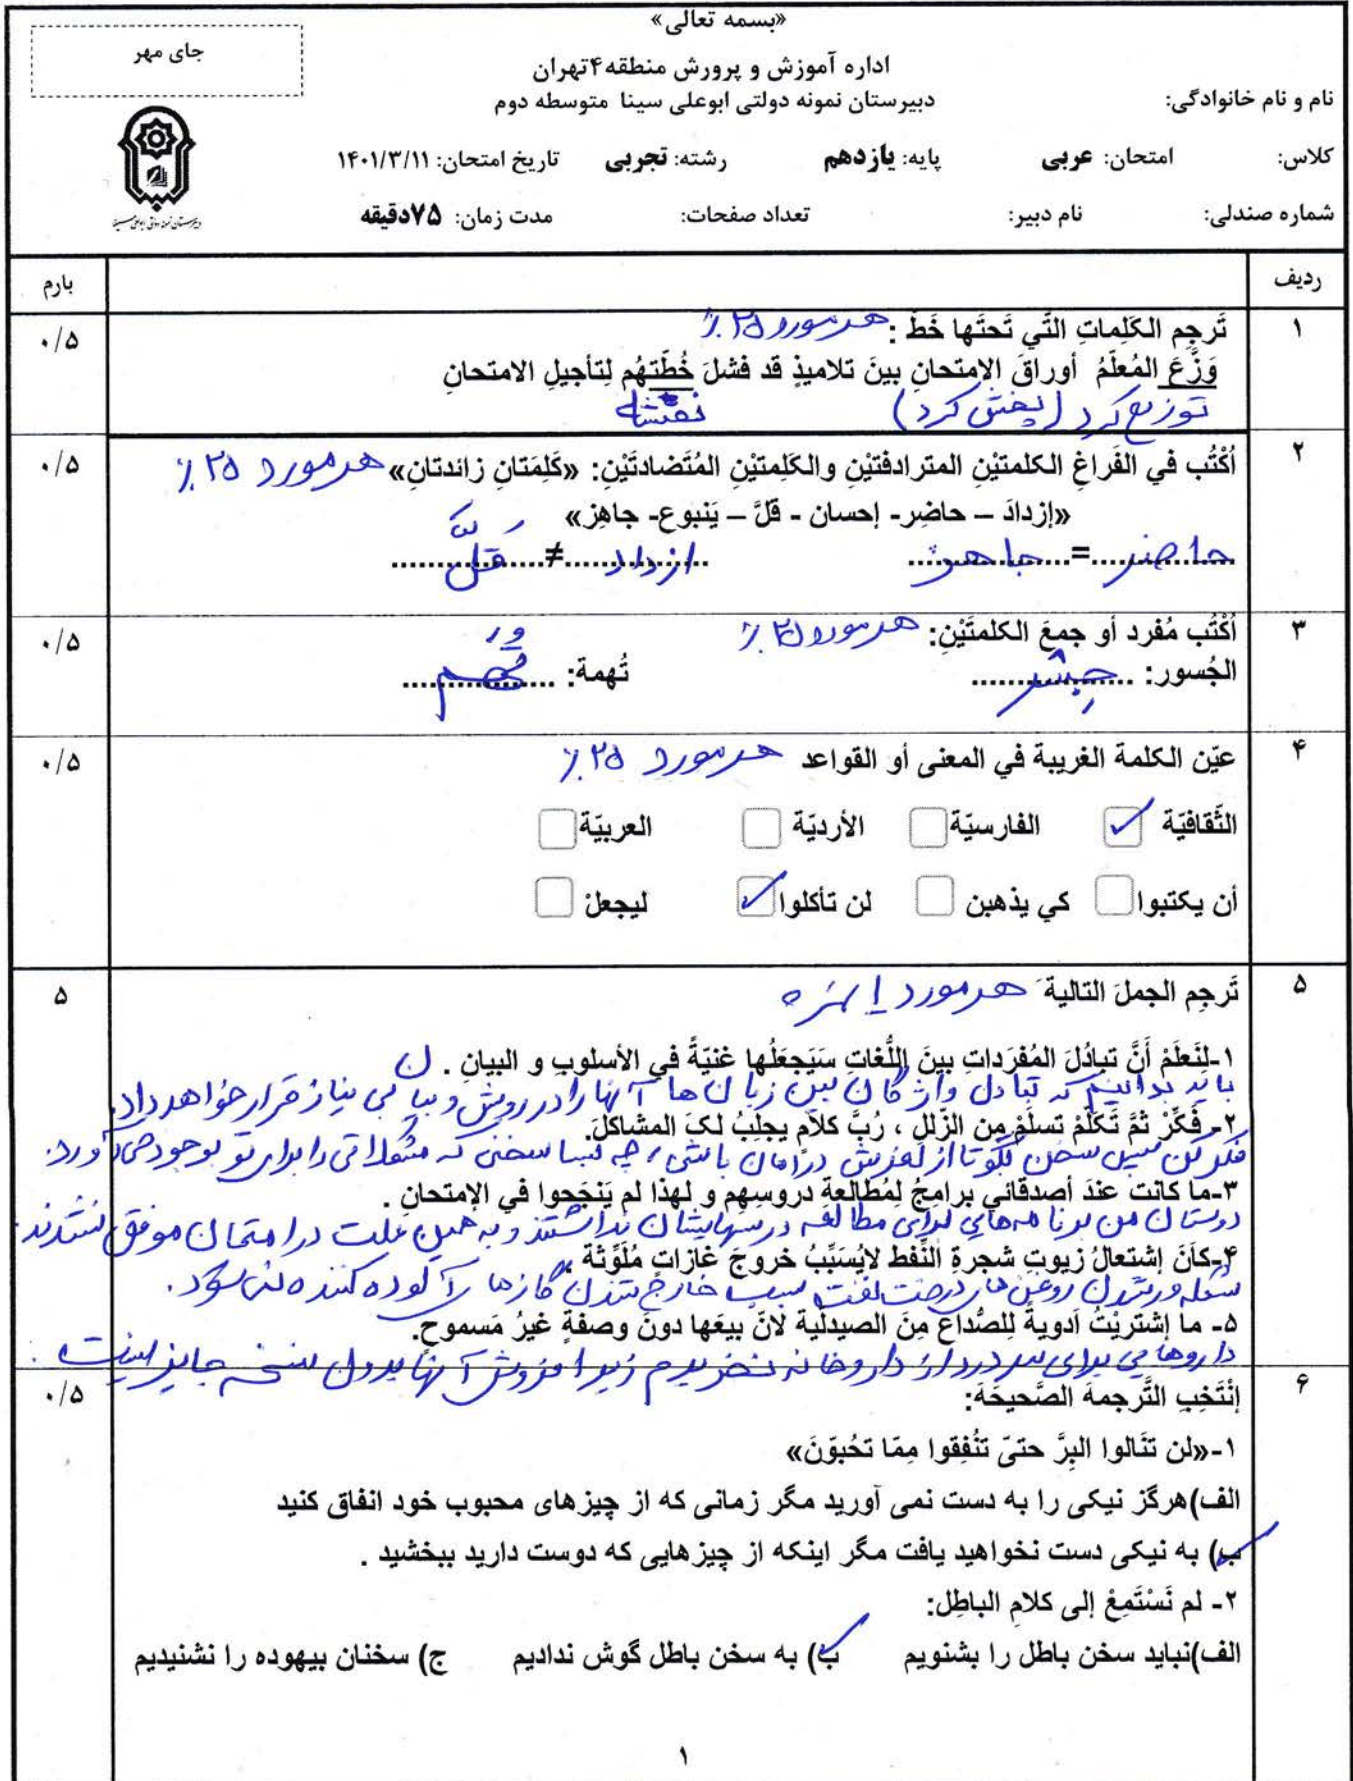 «بسمه تعالی»
جای مهر
اداره آموزش و پرورش منطقه ۴تهران
نام و نام خانوادگی:
دبیرستان نمونه دولتی ابوعلی سینا متوسطه دوم
کلاس: امتحان: عربی پایه: یازدهم رشته: تجربی تاریخ امتحان: ۱۴۰۱/۳/۱۱
شماره صندلی: نام دبیر: تعداد صفحات: مدت زمان: ۷۵دقیقه
ردیف بارم
۱ تَرجِم الکَلِماتِ التَّي تَحتَها خَطّ : هر مورد ۲۵٪ ۰/۵
وَزَّعَ المُعلّمُ أوراقَ الامتحانِ بینَ تلامیذٍ قد فشلَ خُطَّتهُم لِتأجیلِ الامتحانِ
توزیع کرد (پخش کرد) نقشه
۲ اُکْتُب في الفَراغِ الکلمتیْنِ المترادفتیْنِ والکَلِمتیْنِ المُتَضادتَیْنِ: «کَلِمَتانِ زائدتانِ» هر مورد ۲۵٪ ۰/۵
«إزدادَ – حاضِر- إحسان - قلَّ – یَنبوع- جاهِز»
حاضر = جاهز ازداد ≠ قَلَّ
۳ اُکْتُب مُفرد أو جمعَ الکلمتَیْنِ: هر مورد ۲۵٪ ۰/۵
الجُسور: جِسْر تُهمة: تُهَم
۴ عیّن الکلمة الغریبة في المعنی أو القواعد هر مورد ۲۵٪ ۰/۵
الثَّقافیّة الفارسیّة الأردیّة العربیّة
أن یکتبوا کي یذهبن لن تأکلوا لیجعلْ
۵ تَرجِم الجملَ التالیةَ هر مورد ۱ نمره ۵
۱-لِنَعلَمْ أنَّ تبادُلَ المُفرَداتِ بینَ اللُّغاتِ سَیَجعَلُها غنیّةً في الأسلوبِ و البیانِ .
باید بدانیم که تبادل واژگان بین زبان ها آنها را در روش و بیان بی نیاز قرار خواهد داد.
۲- فَکِّرْ ثمَّ تَکلّمْ تسلَمْ مِن الزّللِ ، رُبَّ کلامٍ یجلِبُ لکَ المشاکلَ.
فکر کن سپس سخن بگو تا از لغزش در امان باشی، چه بسا سخنی که مشکلاتی را برای تو بوجود می آورد.
۳-ما کانت عندَ أصدقائي برامِجُ لِمُطالعةِ دروسِهِم و لهذا لم یَنجَحوا في الإمتحانِ .
دوستان من برنامه هایی برای مطالعه درسهایشان نداشتند و به همین علت در امتحان موفق نشدند.
۴-کانَ إشتعالُ زیوتِ شجرةِ النَّفط لایُسَبِّبُ خروجَ غازاتٍ مُلَوِّثة .
شعله ور شدن روغن های درخت نفت سبب خارج شدن گازها آلوده کننده نمی شود.
۵- ما إشتریْتُ اَدویةً لِلصُّداع مِنَ الصیدلّیة لانّ بیعَها دونَ وصفةٍ غیرُ مَسموحٍ.
داروهایی برای سردرد از داروخانه نخریدم زیرا فروش آنها بدون نسخه جایز نیست.
۶ إنْتَخِبِ التَّرجمةَ الصَّحیحَةَ: ۰/۵
۱-«لن تنَالوا البِرَّ حتیّ تنُفِقوا مِمّا تحُبوّنَ»
الف)هرگز نیکی را به دست نمی آورید مگر زمانی که از چیزهای محبوب خود انفاق کنید
ب) به نیکی دست نخواهید یافت مگر اینکه از چیزهایی که دوست دارید ببخشید .
۲- لم نَسْتَمِعْ إلی کلامِ الباطِل:
الف)نباید سخن باطل را بشنویم ب) به سخن باطل گوش ندادیم ج) سخنان بیهوده را نشنیدیم
۱